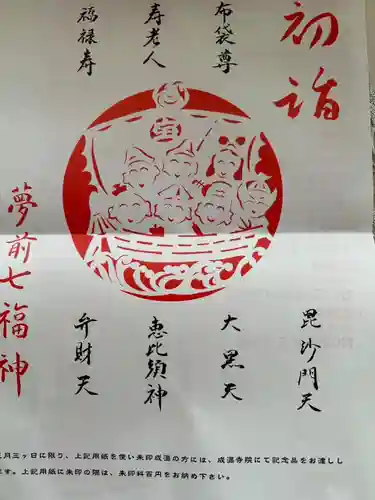 初詣
布袋尊
寿老人
福禄寿
宝
毘沙門天
大黒天
恵比須神
弁財天
夢前七福神
月三ヶ日に限り、上記用紙を使い朱印成満の方には、成満寺院にて記念品をお渡しし
ます。上記用紙に朱印の際は、朱印料百円をお納め下さい。